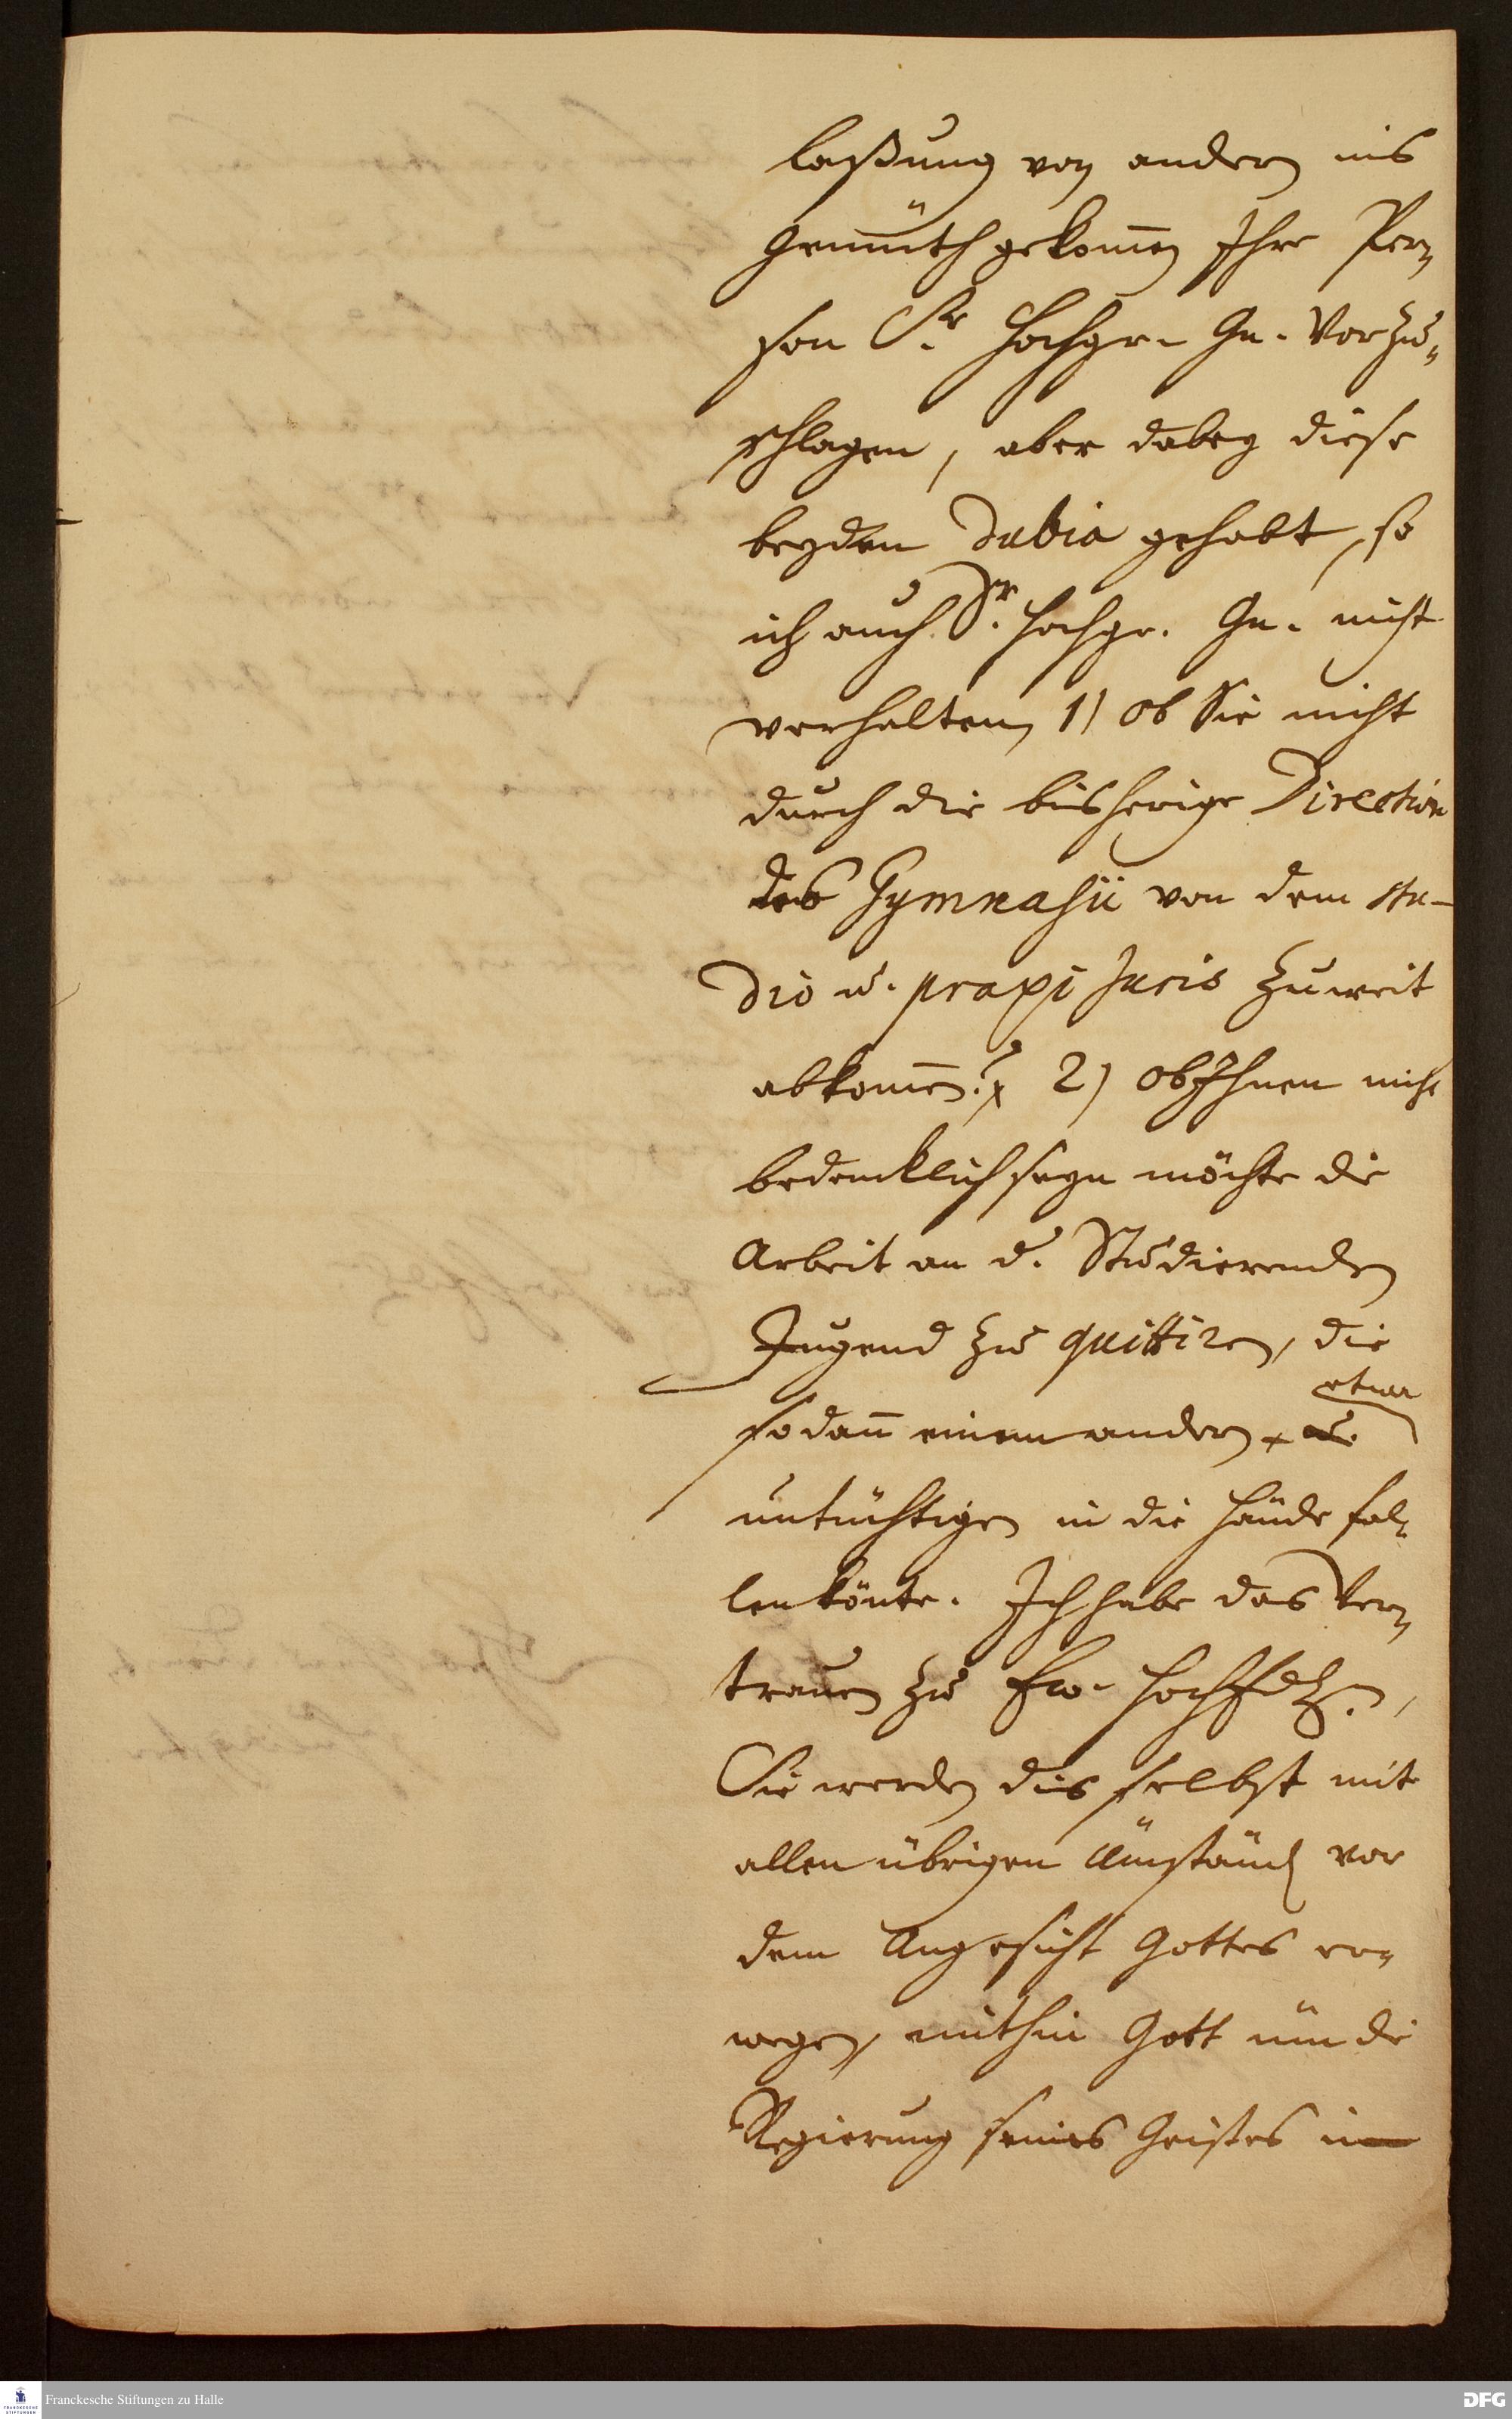 laßung von andern ins
Gemüth gekom̄en Ihre Per-
son Sr. Hochgr. Gn. Vorzu-
schlagen, aber dabey diese
beyden Dubia gehabt, so
ich auch Sr. Hochgr. Gn. nicht
verhalten, 1) ob Sie nicht
durch die bisherige Direction
des Gymnasii von dem stu-
dio u. praxi Juris zuweit
abkom̄en? 2) ob Ihnen nicht
bedencklich seyn möchte die
Arbeit an d. Studierenden
Jugend zu quittiren, die
etwa
sodan̄ einem andern
untüchtigen in die Hände fal-
len könte. Ich habe das Ver-
trauen zu Ew. Hoch
Sie werden dis selbst mit
allen übrigen Umständ vor
dem Angesicht Gottes er-
wegen, mithin Gott um die
Regierung seines Geistes
Franckesche Stiftungen zu Halle
DFG